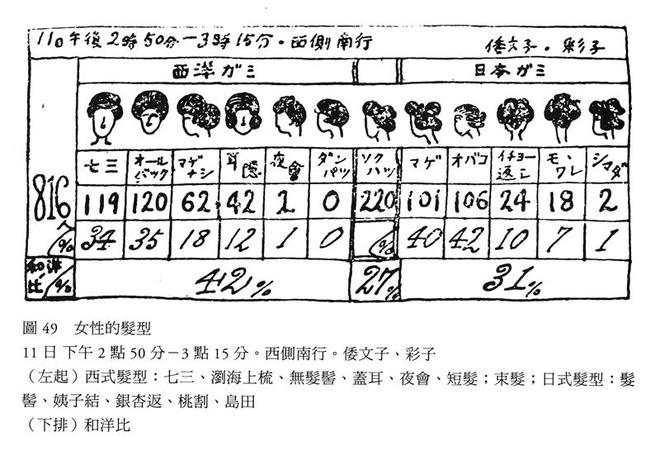 11日午後2時50分—3時15分・西側南行 倭文子・彩子
西洋ガミ 日本ガミ
七三 オールバック マゲナシ 耳隠 夜會 ダンパツ ソクハツ マゲ オバコ イチョー返シ モヽワレ シマダ
816人 119 120 62 42 2 0 220 101 106 24 18 2
% 34 35 18 12 1 0 % 40 42 10 7 1
和洋比/% 42% 27% 31%
圖 49 女性的髮型
11 日 下午 2 點 50 分－3 點 15 分。西側南行。倭文子、彩子
（左起）西式髮型：七三、瀏海上梳、無髮髻、蓋耳、夜會、短髮；束髮；日式髮型：髮
髻、姨子結、銀杏返、桃割、島田
（下排）和洋比